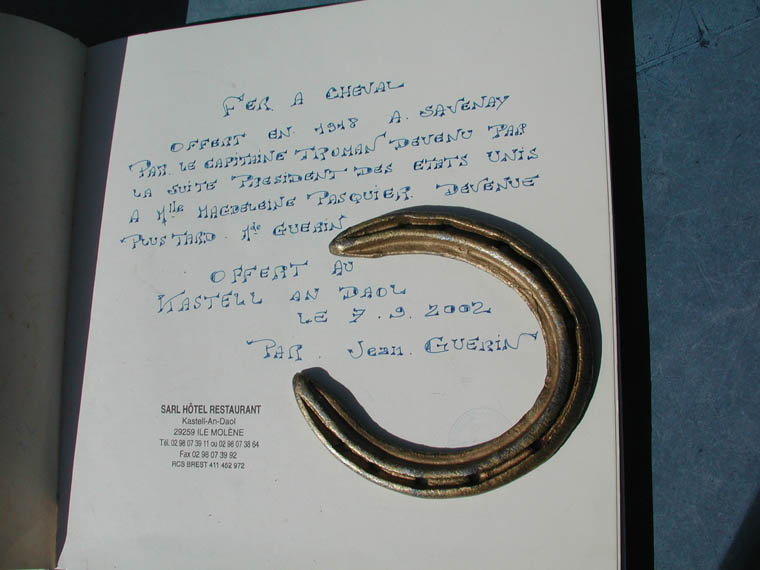 FER A CHEVAL
OFFERT EN 1918 A. SAVENAY
PAR LE CAPITAINE TRUMAN DEVENU PAR
LA SUITE PRESIDENT DES ETATS UNIS
A Mlle MAGDELEINE PASQUIER. DEVENUE
PLUS TARD. Mde GUERIN
OFFERT AU
KASTELL AN DAOL
LE 7.9.2002
PAR. Jean. GUERIN
SARL HÔTEL RESTAURANT
Kastell-An-Daol
29259 ILE MOLÈNE
Tél. 02 98 07 39 11 ou 02 98 07 38 64
Fax 02 98 07 39 92
RCS BREST 411 452 972